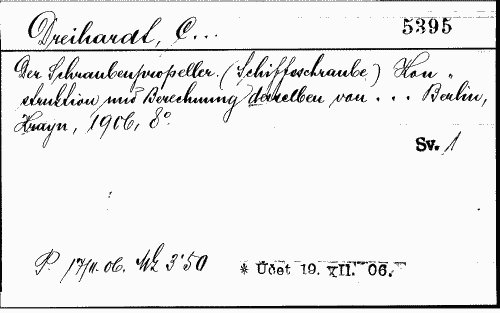 Dreihardt, C... 5395
Der Schraubenpropeller. (Schiffsschraube.) Kon„
struktion und Berechnung derselben von ... Berlin,
Krayn, 1906, 8°.
Sv. 1
P. 17/11. 06. Mk 3·50 * Účet 19. XII. 06.